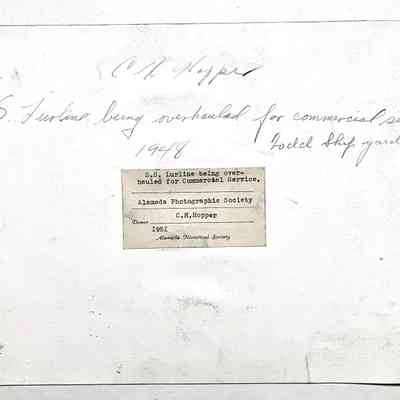 C H Hopper
S. Lurline being overhauled for commercial se
1948
Todd Ship yard
S.S. Lurline being over-
hauled for Commercial Service.
Alameda Photographic Society
C.H.Hopper
Donor
1951
Alameda Historical Society